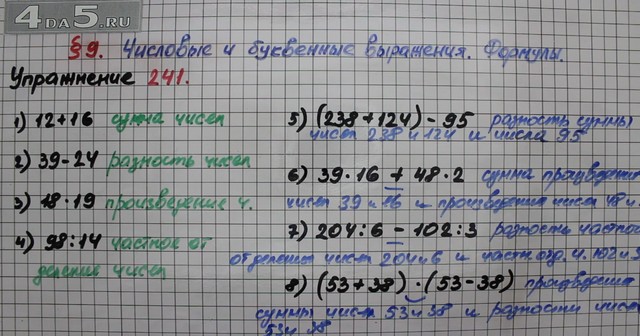 4DA5.RU
§9. Числовые и буквенные выражения. Формулы.
Упражнение 241.
1) 12+16 сумма чисел
2) 39-24 разность чисел
3) 18·19 произведение ч.
4) 98:14 частное от
деления чисел
5) (238+124)-95 разность суммы
чисел 238 и 124 и числа 95
6) 39·16 + 48·2 сумма произведения
чисел 39 и 16 и произведения чисел 48 и
7) 204:6 - 102:3 разность частного
от деления чисел 204 и 6 и частн. от д. ч. 102 и 3
8) (53+38)·(53-38) произведение
суммы чисел 53 и 38 и разности чисел
53 и 38